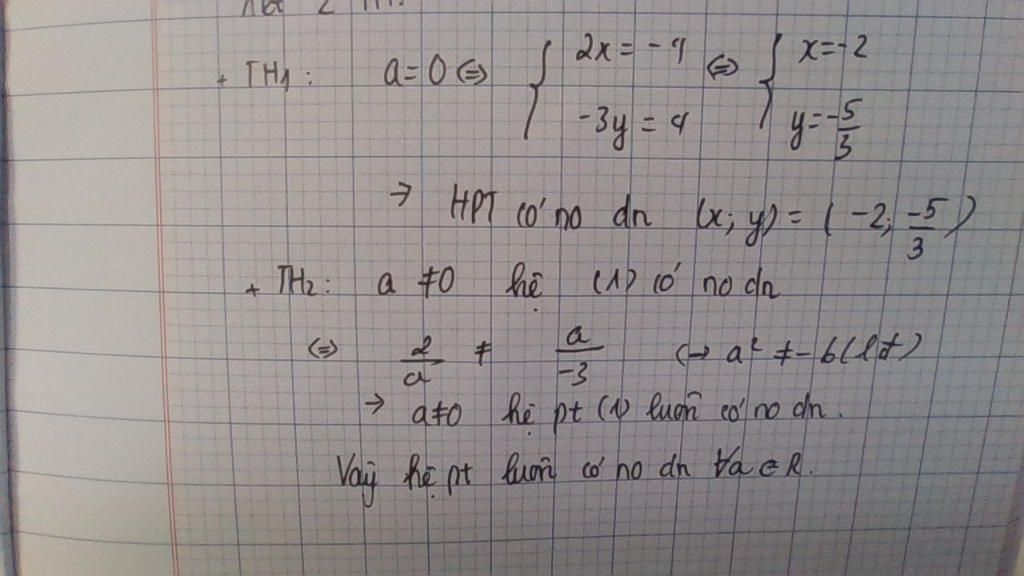 + TH1: a = 0 ⇔ { 2x = -4 ⇔ { x = -2
-3y = 4 y = -5/3
→ HPT có no dn (x; y) = ( -2; -5/3 )
+ TH2: a ≠ 0 hệ (1) có no dn
⇔ 2/a ≠ a/-3 ↔ a² ≠ -6 (lđ)
→ a ≠ 0 hệ pt (1) luôn có no dn.
Vậy hệ pt luôn có no dn ∀a ∈ R.